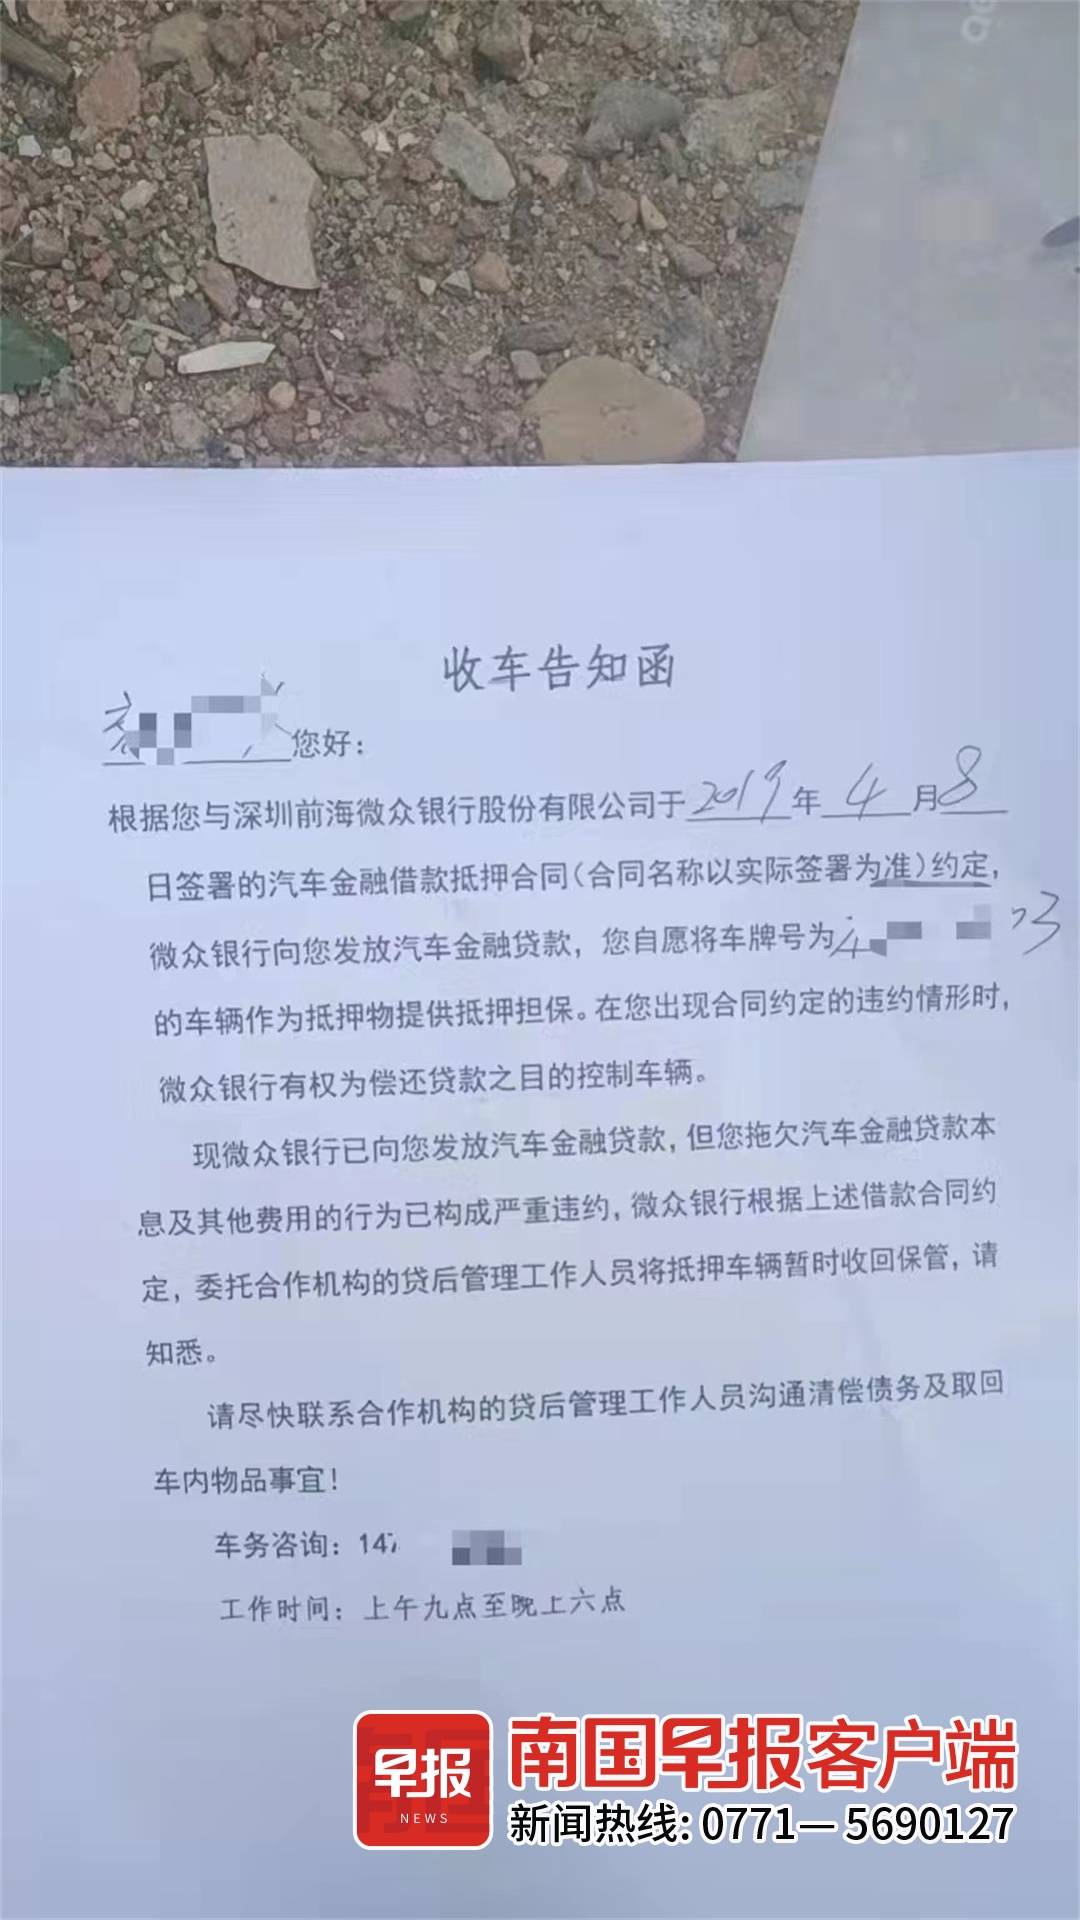 收车告知函
您好：
根据您与深圳前海微众银行股份有限公司于2019年4月8
日签署的汽车金融借款抵押合同（合同名称以实际签署为准）约定，
微众银行向您发放汽车金融贷款，您自愿将车牌号为
的车辆作为抵押物提供抵押担保。在您出现合同约定的违约情形时，
微众银行有权为偿还贷款之目的控制车辆。
现微众银行已向您发放汽车金融贷款，但您拖欠汽车金融贷款本
息及其他费用的行为已构成严重违约，微众银行根据上述借款合同约
定，委托合作机构的贷后管理工作人员将抵押车辆暂时收回保管，请
知悉。
请尽快联系合作机构的贷后管理工作人员沟通清偿债务及取回
车内物品事宜！
车务咨询：147
工作时间：上午九点至晚上六点
早报
NEWS
南国早报客户端
新闻热线：0771—5690127